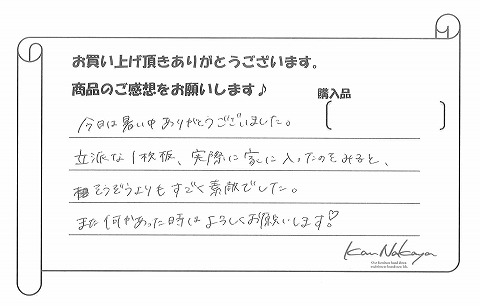 お買い上げ頂きありがとうございます。
商品のご感想をお願いします♪
購入品
今日は暑い中ありがとうございました。
立派な1枚板、実際に家に入ったのをみると、
そうぞうよりもすごく素敵でした。
また何かあった時はよろしくお願いします!♡
Kan Nakaya